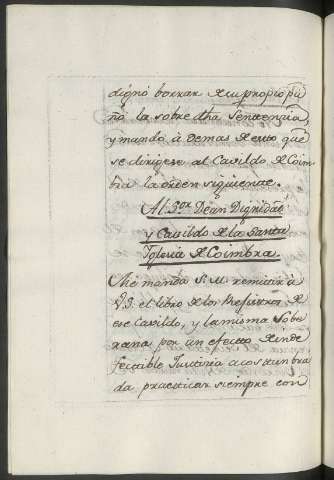 dignó borrar de su propio pu
ño la sobre dha Sentencia,
y mandó à demas de esto que
se dirigese al Cavildo de Coim
bra la orden siguiente.
Al S.or Dean Dignidad
y Cavildo de la Santa
Iglesia de Coimbra
Me manda S. M. remitir à
V.S. el libro de los
ese Cavildo, y la misma Sobe
rana por un efecto de inde
fectible Justicia acostumbra
da practicar siempre con